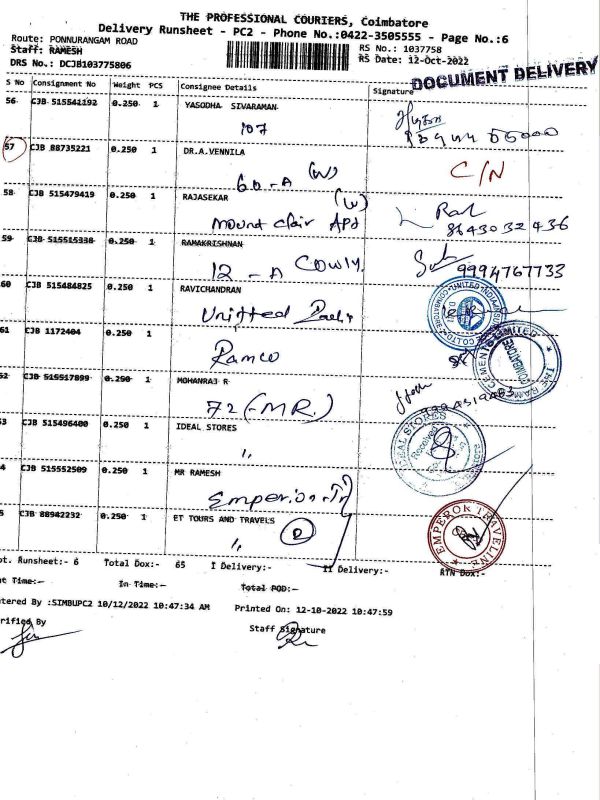 THE PROFESSIONAL COURIERS, Coimbatore
Delivery Runsheet - PC2 - Phone No.:0422-3505555 - Page No.:6
Route: PONNURANGAM ROAD
Staff: RAMESH
DRS No.: DCJB103775806
RS No.: 1037758
RS Date: 12-Oct-2022
DOCUMENT DELIVERY
S No Consignment No Weight PCS Consignee Details Signature
56 CJB 515541192 0.250 1 YASODHA SIVARAMAN
107
57 CJB 88735221 0.250 1 DR.A.VENNILA
60-A (W) C/N
58 CJB 515479419 0.250 1 RAJASEKAR (W)
Mount clair Apt 8643032436
59 CJB 515515338 0.250 1 RAMAKRISHNAN
12-A Cowly. 9994767733
60 CJB 515484825 0.250 1 RAVICHANDRAN
61 CJB 1172404 0.250 1
Ramco
THE RAMCO CEMENTS LIMITED
COIMBATORE
62 CJB 515517899 0.250 1 MOHANRAJ R
72 (-MR.)
63 CJB 515496400 0.250 1 IDEAL STORES
IDEAL STORES
Received
64 CJB 515552509 0.250 1 MR RAMESH
65 CJB 88942232 0.250 1 ET TOURS AND TRAVELS
EMPEROR TRAVELINE
ot. Runsheet:- 6 Total Dox:- 65 I Delivery:- II Delivery:- RTN Dox:-
ut Time:- In Time:- Total POD:-
ntered By :SIMBUPC2 10/12/2022 10:47:34 AM Printed On: 12-10-2022 10:47:59
erified By Staff Signature